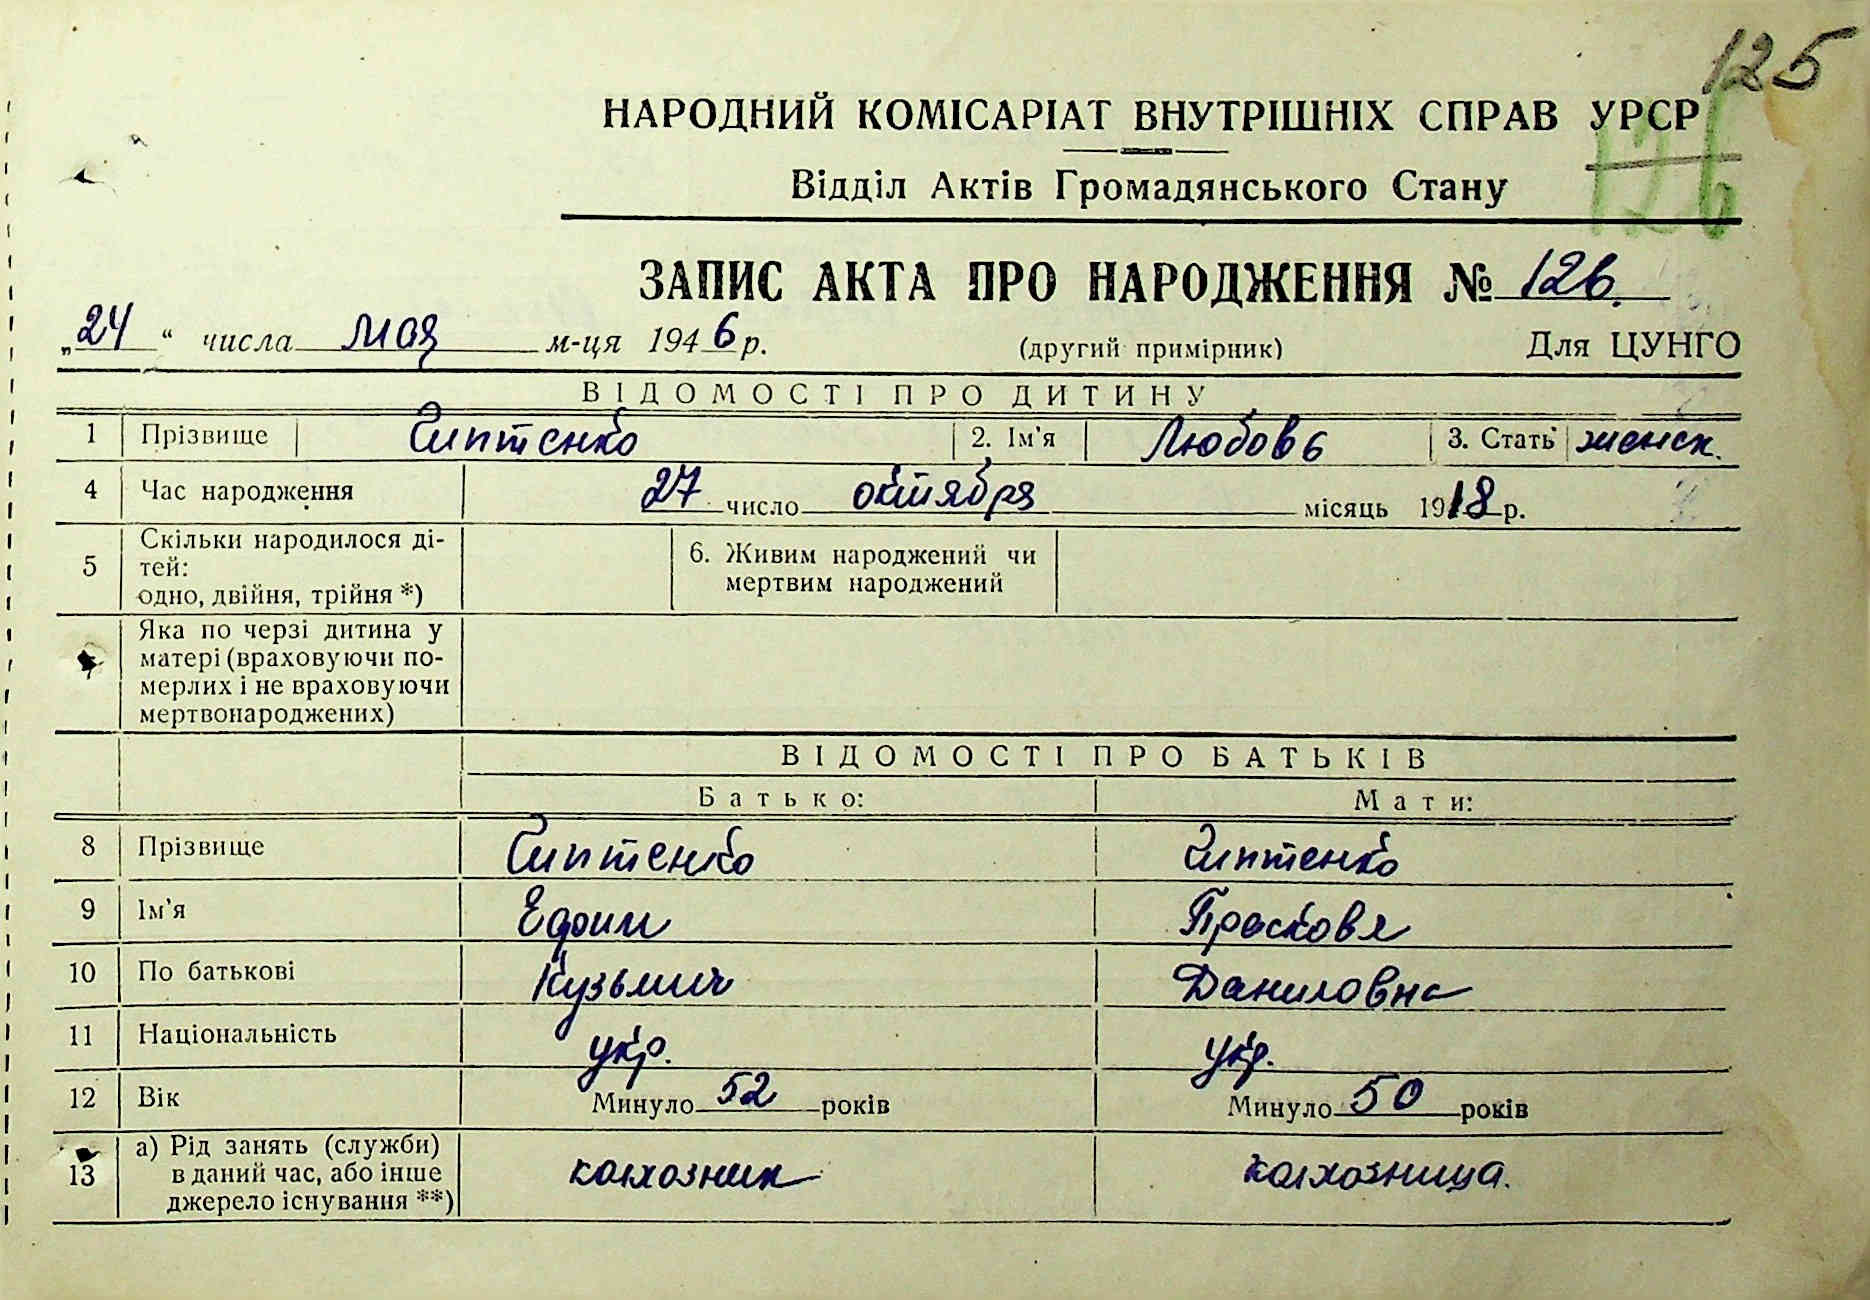 125
НАРОДНИЙ КОМІСАРІАТ ВНУТРІШНІХ СПРАВ УРСР
126
Відділ Актів Громадянського Стану
ЗАПИС АКТА ПРО НАРОДЖЕННЯ № 126.
„24“ числа мая м-ця 1946 р. (другий примірник) Для ЦУНГО
ВІДОМОСТІ ПРО ДИТИНУ
1 Прізвище Сиптенко 2. Ім'я Любовь 3. Стать женск.
4 Час народження 27 число октября місяць 1918 р.
5 Скільки народилося ді-
тей:
одно, двійня, трійня *)
6. Живим народжений чи
мертвим народжений
7 Яка по черзі дитина у
матері (враховуючи по-
мерлих і не враховуючи
мертвонароджених)
ВІДОМОСТІ ПРО БАТЬКІВ
Батько: Мати:
8 Прізвище Сиптенко Сиптенко
9 Ім'я Ефим Прасковя
10 По батькові Кузьмич Даниловна
11 Національність укр. укр.
12 Вік Минуло 52 років Минуло 50 років
13 а) Рід занять (служби)
в даний час, або інше
джерело існування **)
колхозник колхозница.